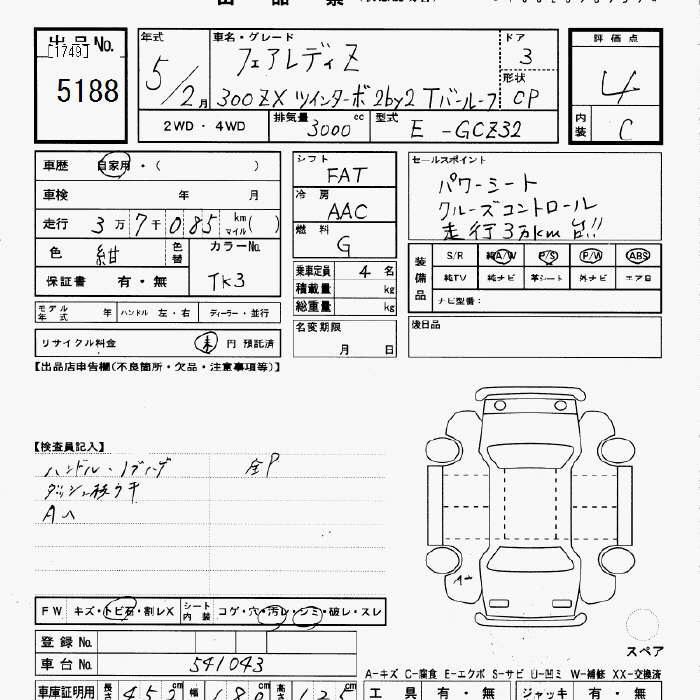 出品No.
[1749]
5188
年式
5/2月
車名・グレード
フェアレディZ
300ZX ツインターボ 2by2 Tバールーフ
ドア
3
形状
CP
評価点
4
内装
C
2WD・4WD
排気量 3000 cc
型式 E-GCZ32
車歴 自家用・( )
車検 年 月
走行 3万7千085 km マイル( )
色 紺 色替
カラーNo. TK3
保証書 有・無
モデル年式 年 ハンドル 左・右 ディーラー・並行
リサイクル料金 未 円 預託済
シフト
FAT
冷房
AAC
燃料
G
乗車定員 4 名
積載量 kg
総重量 kg
名変期限
月 日
セールスポイント
パワーシート
クルーズコントロール
走行3万km台!!
装備品
S/R 純A/W P/S P/W ABS
純TV 純ナビ 革シート 外ナビ エアB
ナビ型番:
後日品
【出品店申告欄(不良箇所・欠品・注意事項等)】
【検査員記入】
全P
A
FW キズ・トビ石・割レX シート内装 コゲ・穴・汚レ・シミ・破レ・スレ
登録No.
車台No. 541043
車庫証明用 長さ 452 cm 幅 180 cm 高さ 125 cm
スペア
A-キズ C-腐食 E-エクボ S-サビ U-凹ミ W-補修 XX-交換済
工具 有・無 ジャッキ 有・無